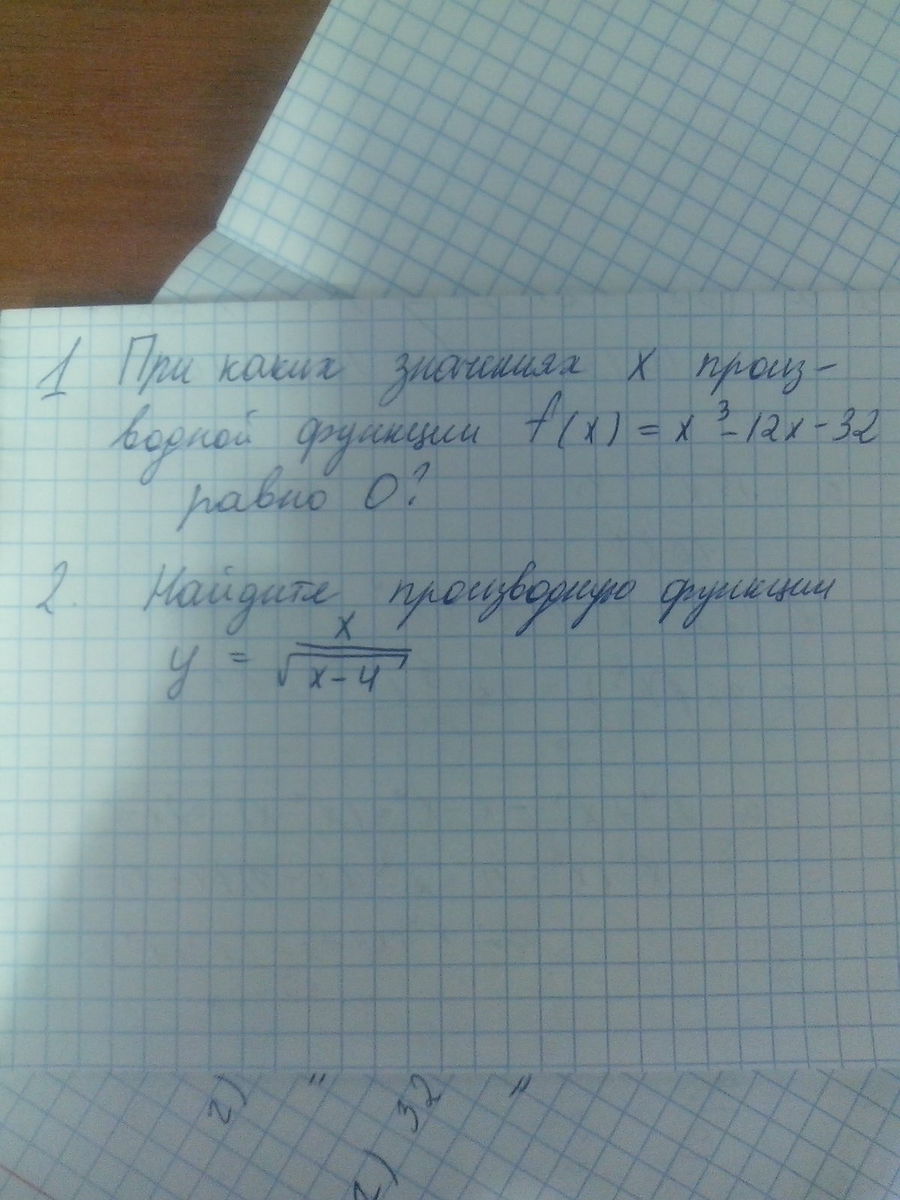 1 При каких значениях х произ-
водной функции f(x) = x³-12x-32
равно 0?
2. Найдите производную функции
y = x/√(x-4)
г) " 32 "
2)